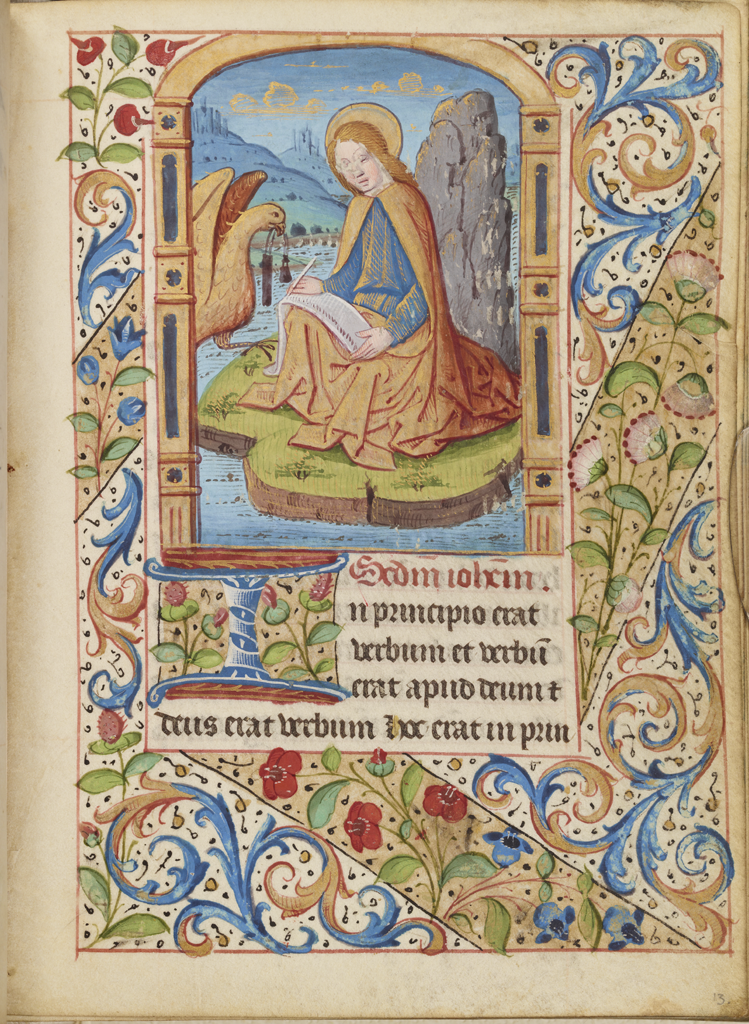 Scdm̄ ioħem̄.
In principio erat
verbum et verbū
erat apud deum ⁊
deus erat verbum Hoc erat in prin
13